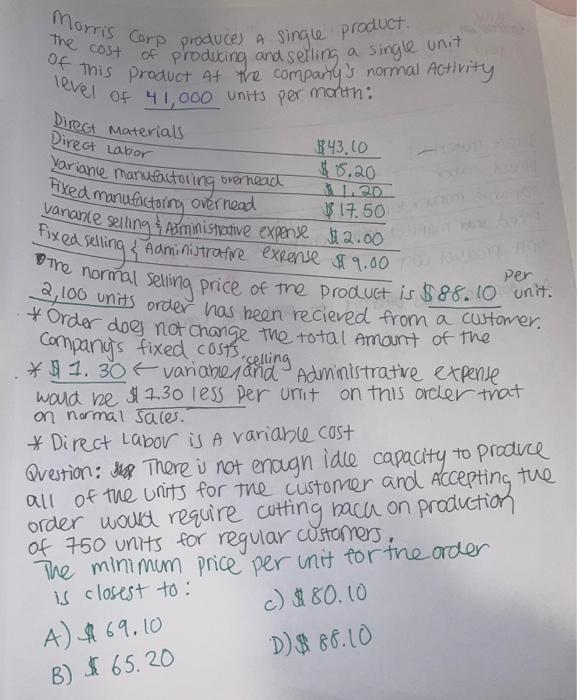 Morris Corp produces A single product.
The cost of producing and selling a single unit
of this product At the company's normal Activity
level of 41,000 units per month:
Direct Materials $43.10
Direct Labor $8.20
Variable manufactoring overhead $1.20
Fixed manufactoring overhead $17.50
variable selling & Administrative expense $2.00
Fixed selling & Administrative expense $9.00
The normal selling price of the product is $88.10 per unit.
2,100 units order has been recieved from a customer.
* Order does not change the total Amount of the
company's fixed costs.
* $1.30 ← variable selling and Administrative expense
would be $1.30 less per unit on this order that
on normal sales.
* Direct Labor is A variable cost
Question: There is not enough idle capacity to produce
all of the units for the customer and Accepting the
order would require cutting back on production
of 750 units for regular customers.
The minimum price per unit for the order
is closest to:
A) $69.10
B) $65.20
c) $80.10
D) $88.10